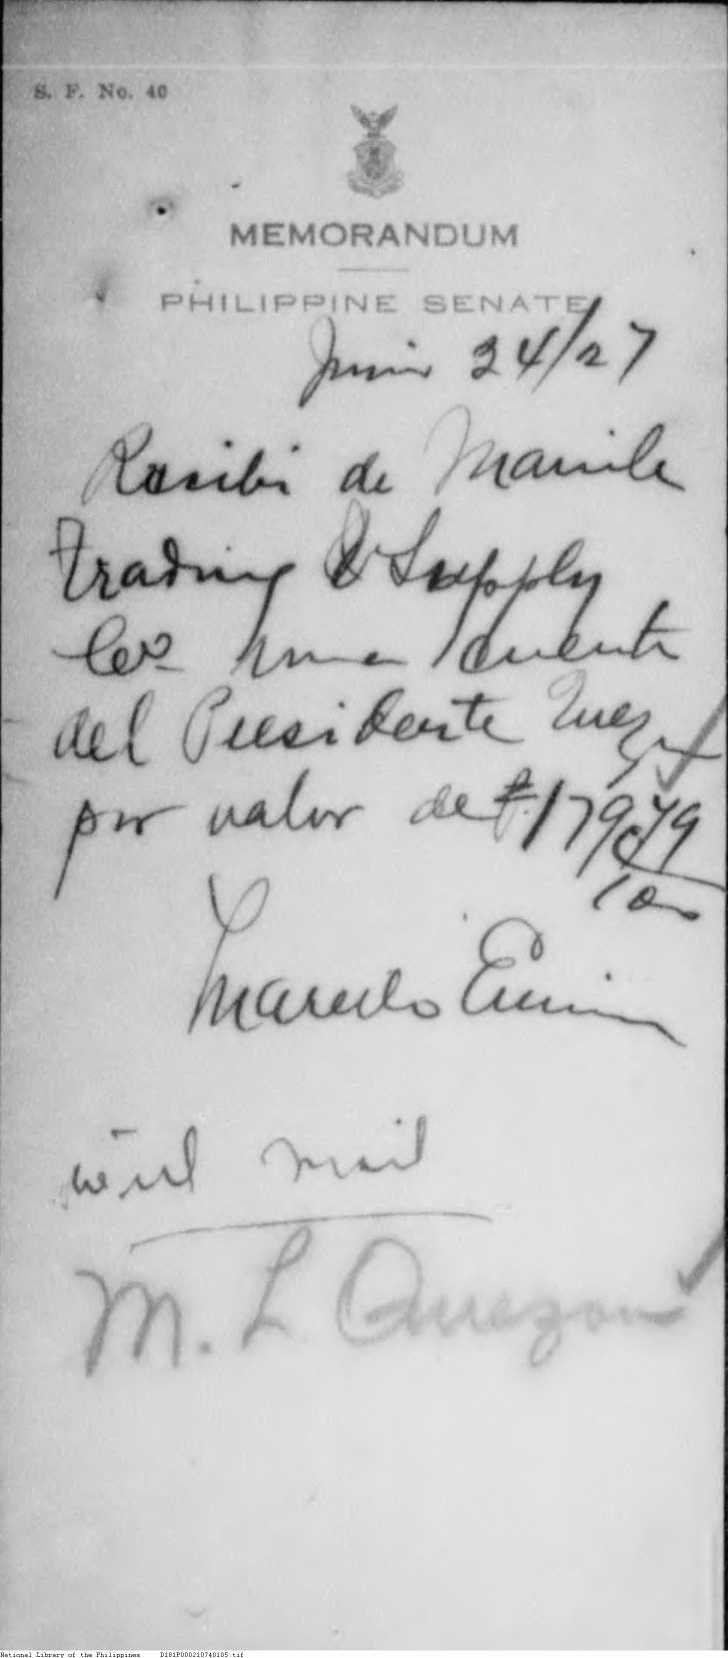 S. F. No. 40
MEMORANDUM
PHILIPPINE SENATE
Junio 24/27
Recibi de Manila
Trading & Supply
Co. una cuenta
del Presidente Quezon
por valor de ₱179 79/100
Marcelo
will mail
M. L Quezon
National Library of the Philippines D181P000210740105.tif